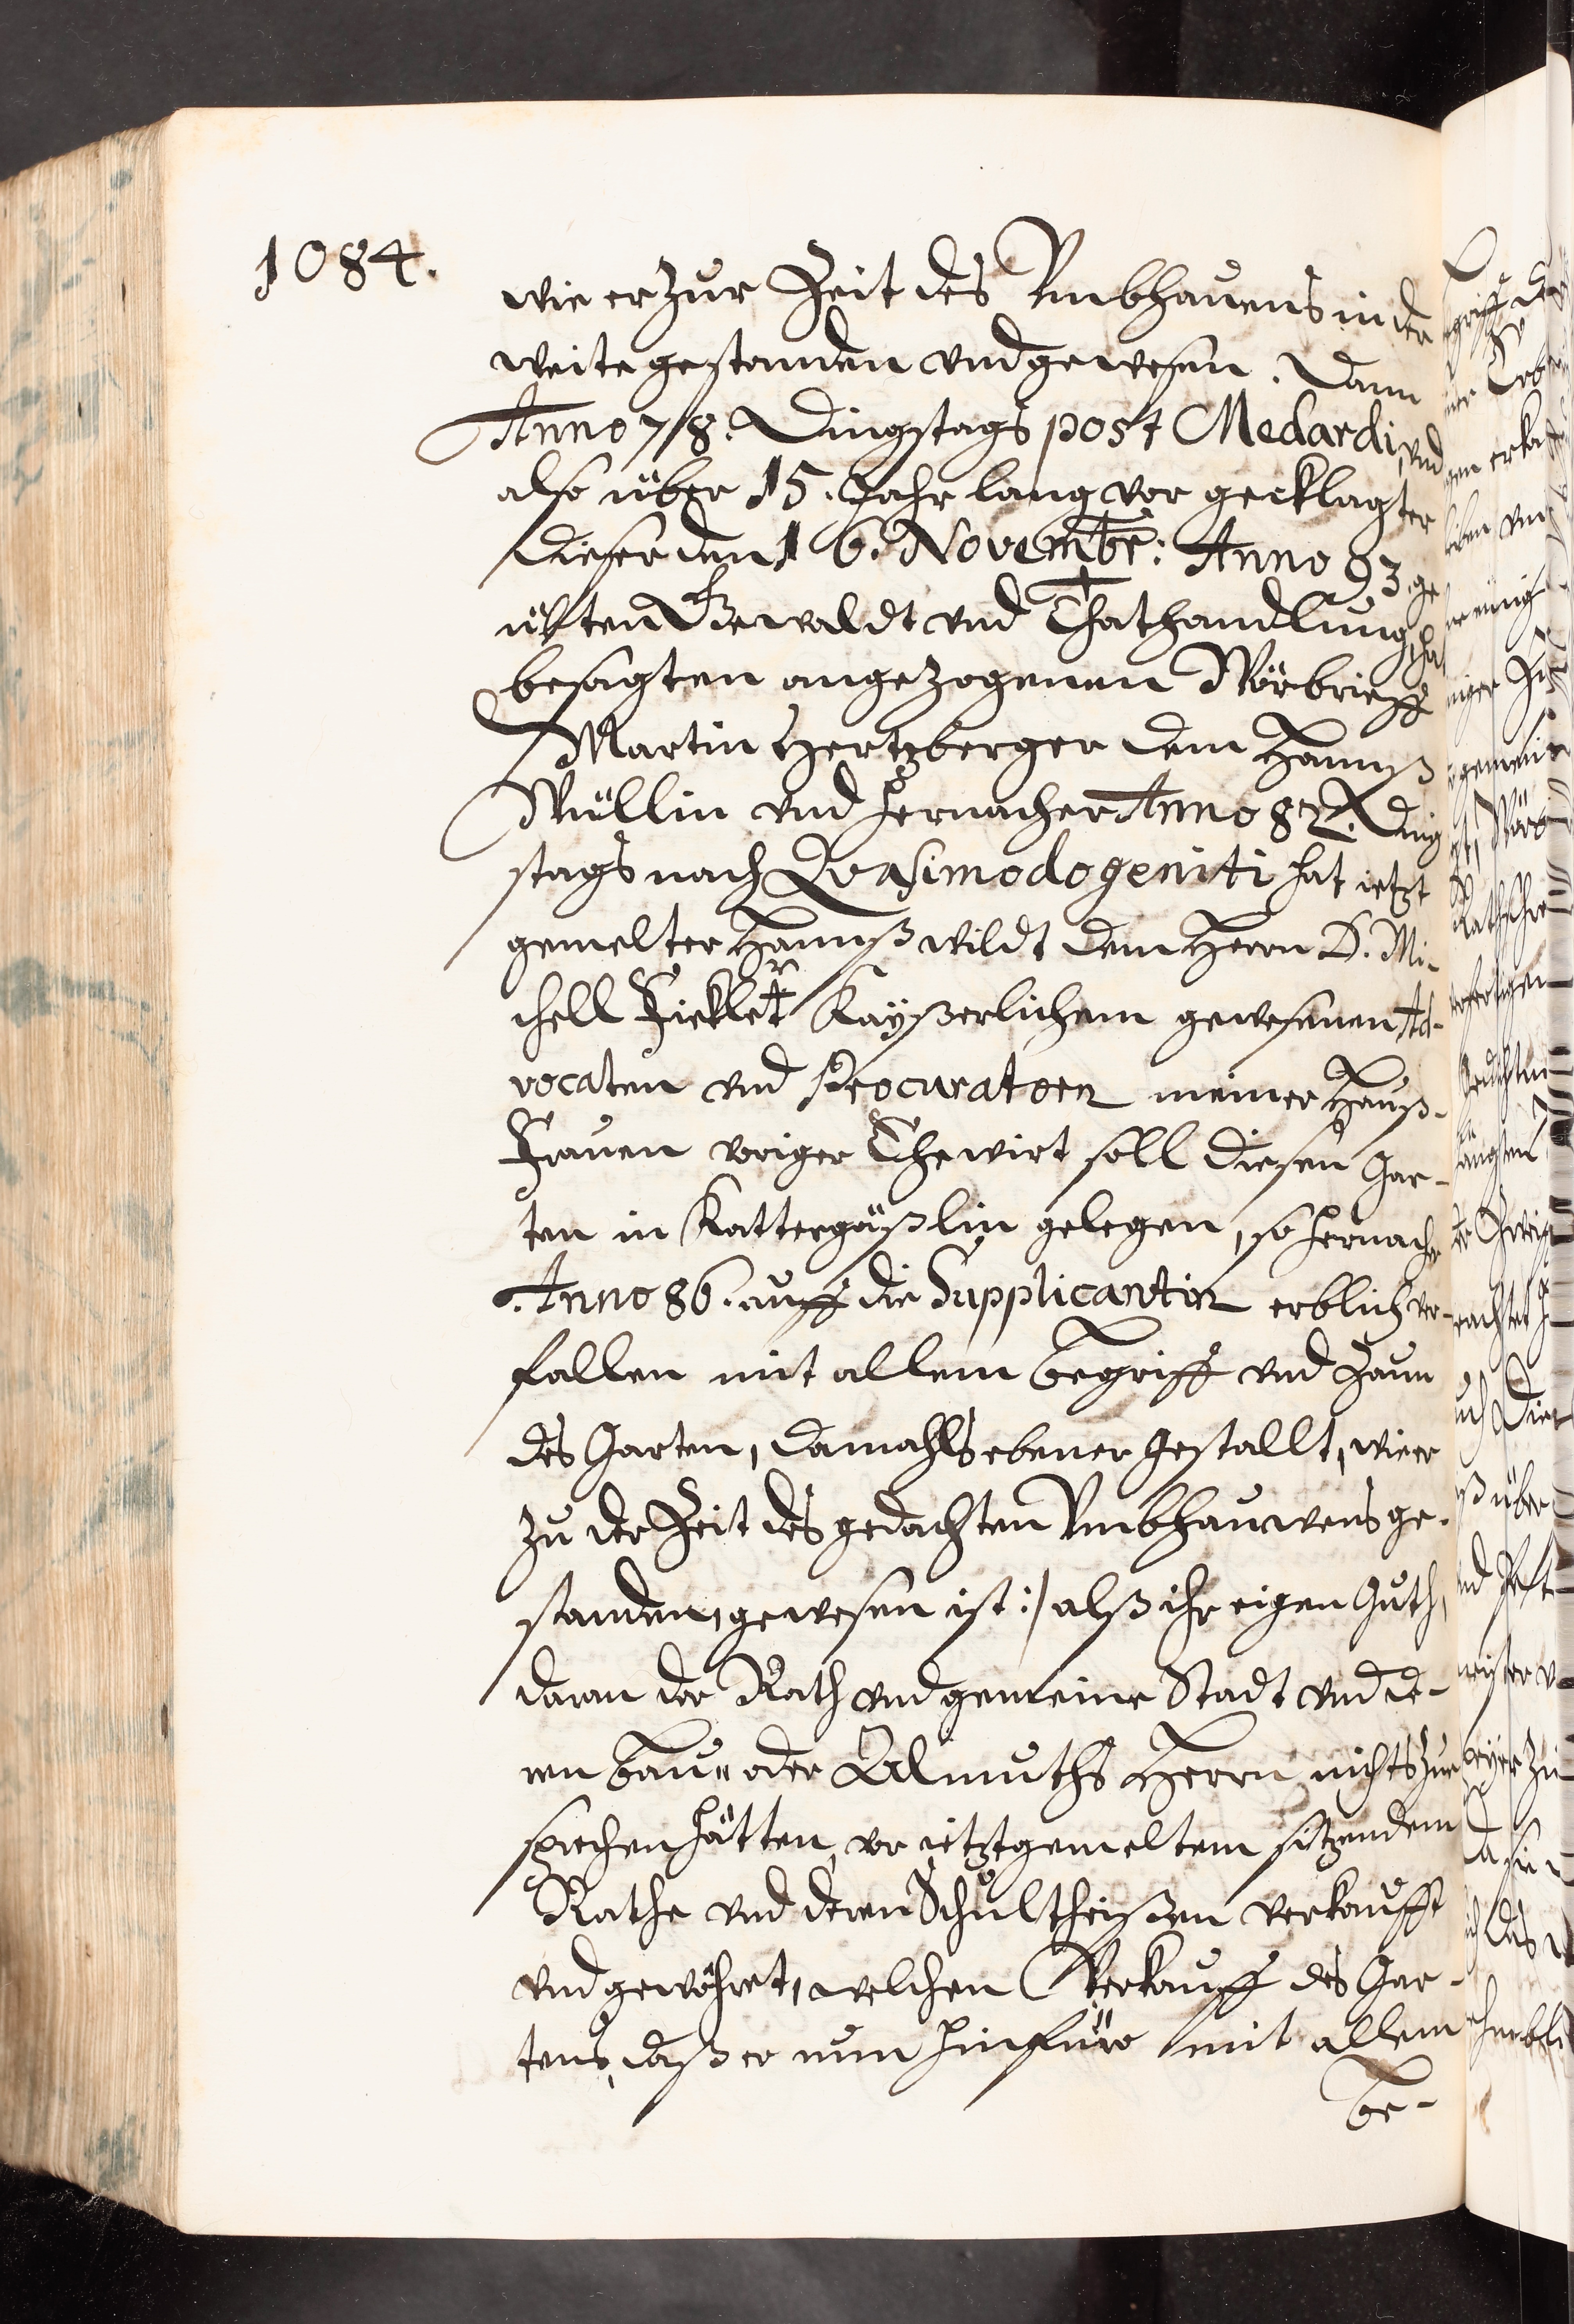 1084.
wie er zur Zeit des Vmbhauens in der
weite gestanden vnd gewesen. Dann
Anno 78. Dingstags post Medardi, vnd
also über 15. Jahr lang vor geklagter
dieser den 16. Novembr: Anno 93. ge
übten Gewaldt vnd Thathandlung, hat
besagten angezogenen Wörbrieff
Martin Hertzberger dem Hannß
Wüllin vnd hernacher Anno 82. Ding
stags nach Qvasimodogeniti hat ietzt
gemelter Hannß wildt dem Herrn D. Mi-
chell Fickler Kayßerlichem gewesenen Ad-
vocaten vnd Procuratorn meiner Hauß-
Frauen voriger Ehewirt soll diesen Gar-
ten in Kattergäßlin gelegen, so hernacher
Anno 86. auff die Supplicantin erblich ver-
fallen mit allem Begriff vnd Zaun
des Garten, damahls ebener gestallt, wie er
zu der Zeit des gedachten Vmbhauwens ge-
standen, gewesen ist:/ alß ihr eigen Guth,
daran der Rath vnd gemeine Stadt vnd de-
ren Bau- oder Almuths Herrn nichts zue
sprechen hätten, vor ietztgemeltem sitzendem
Rathe vnd deren Schultheißen verkaufft
vnd gewöhret, welchen Verkauff des Gar-
tens, daß er nun hinfüro mit allem
be-